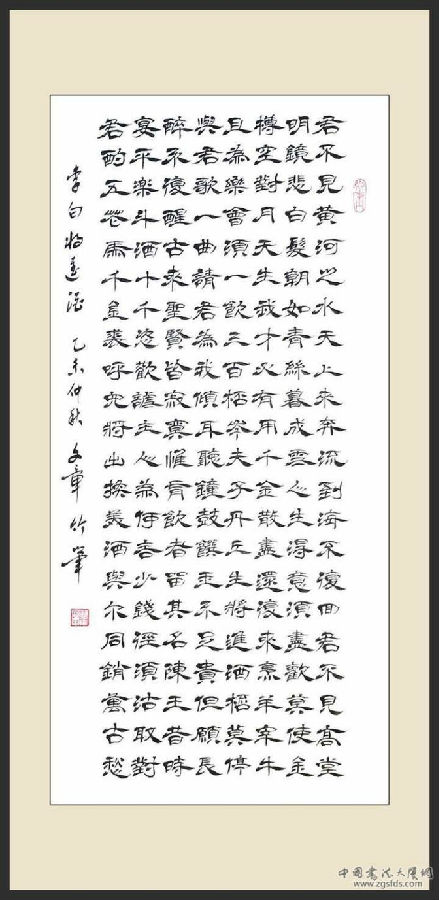 君不見黃河之水天上來奔流到海不復回君不見高堂
明鏡悲白髮朝如青絲暮成雪人生得意須盡歡莫使金
樽空對月天生我才必有用千金散盡還復來烹羊宰牛
且為樂會須一飲三百杯岑夫子丹丘生將進酒杯莫停
與君歌一曲請君為我傾耳聽鐘鼓饌玉不足貴但願長
醉不復醒古來聖賢皆寂寞惟有飲者留其名陳王昔時
宴平楽斗酒十千恣歡謔主人為何言少錢徑須沽取對
君酌五花馬千金裘呼兒將出換美酒與尔同銷萬古愁
李白將進酒 乙未仲秋 文章竹筆
www.zgsfds.com